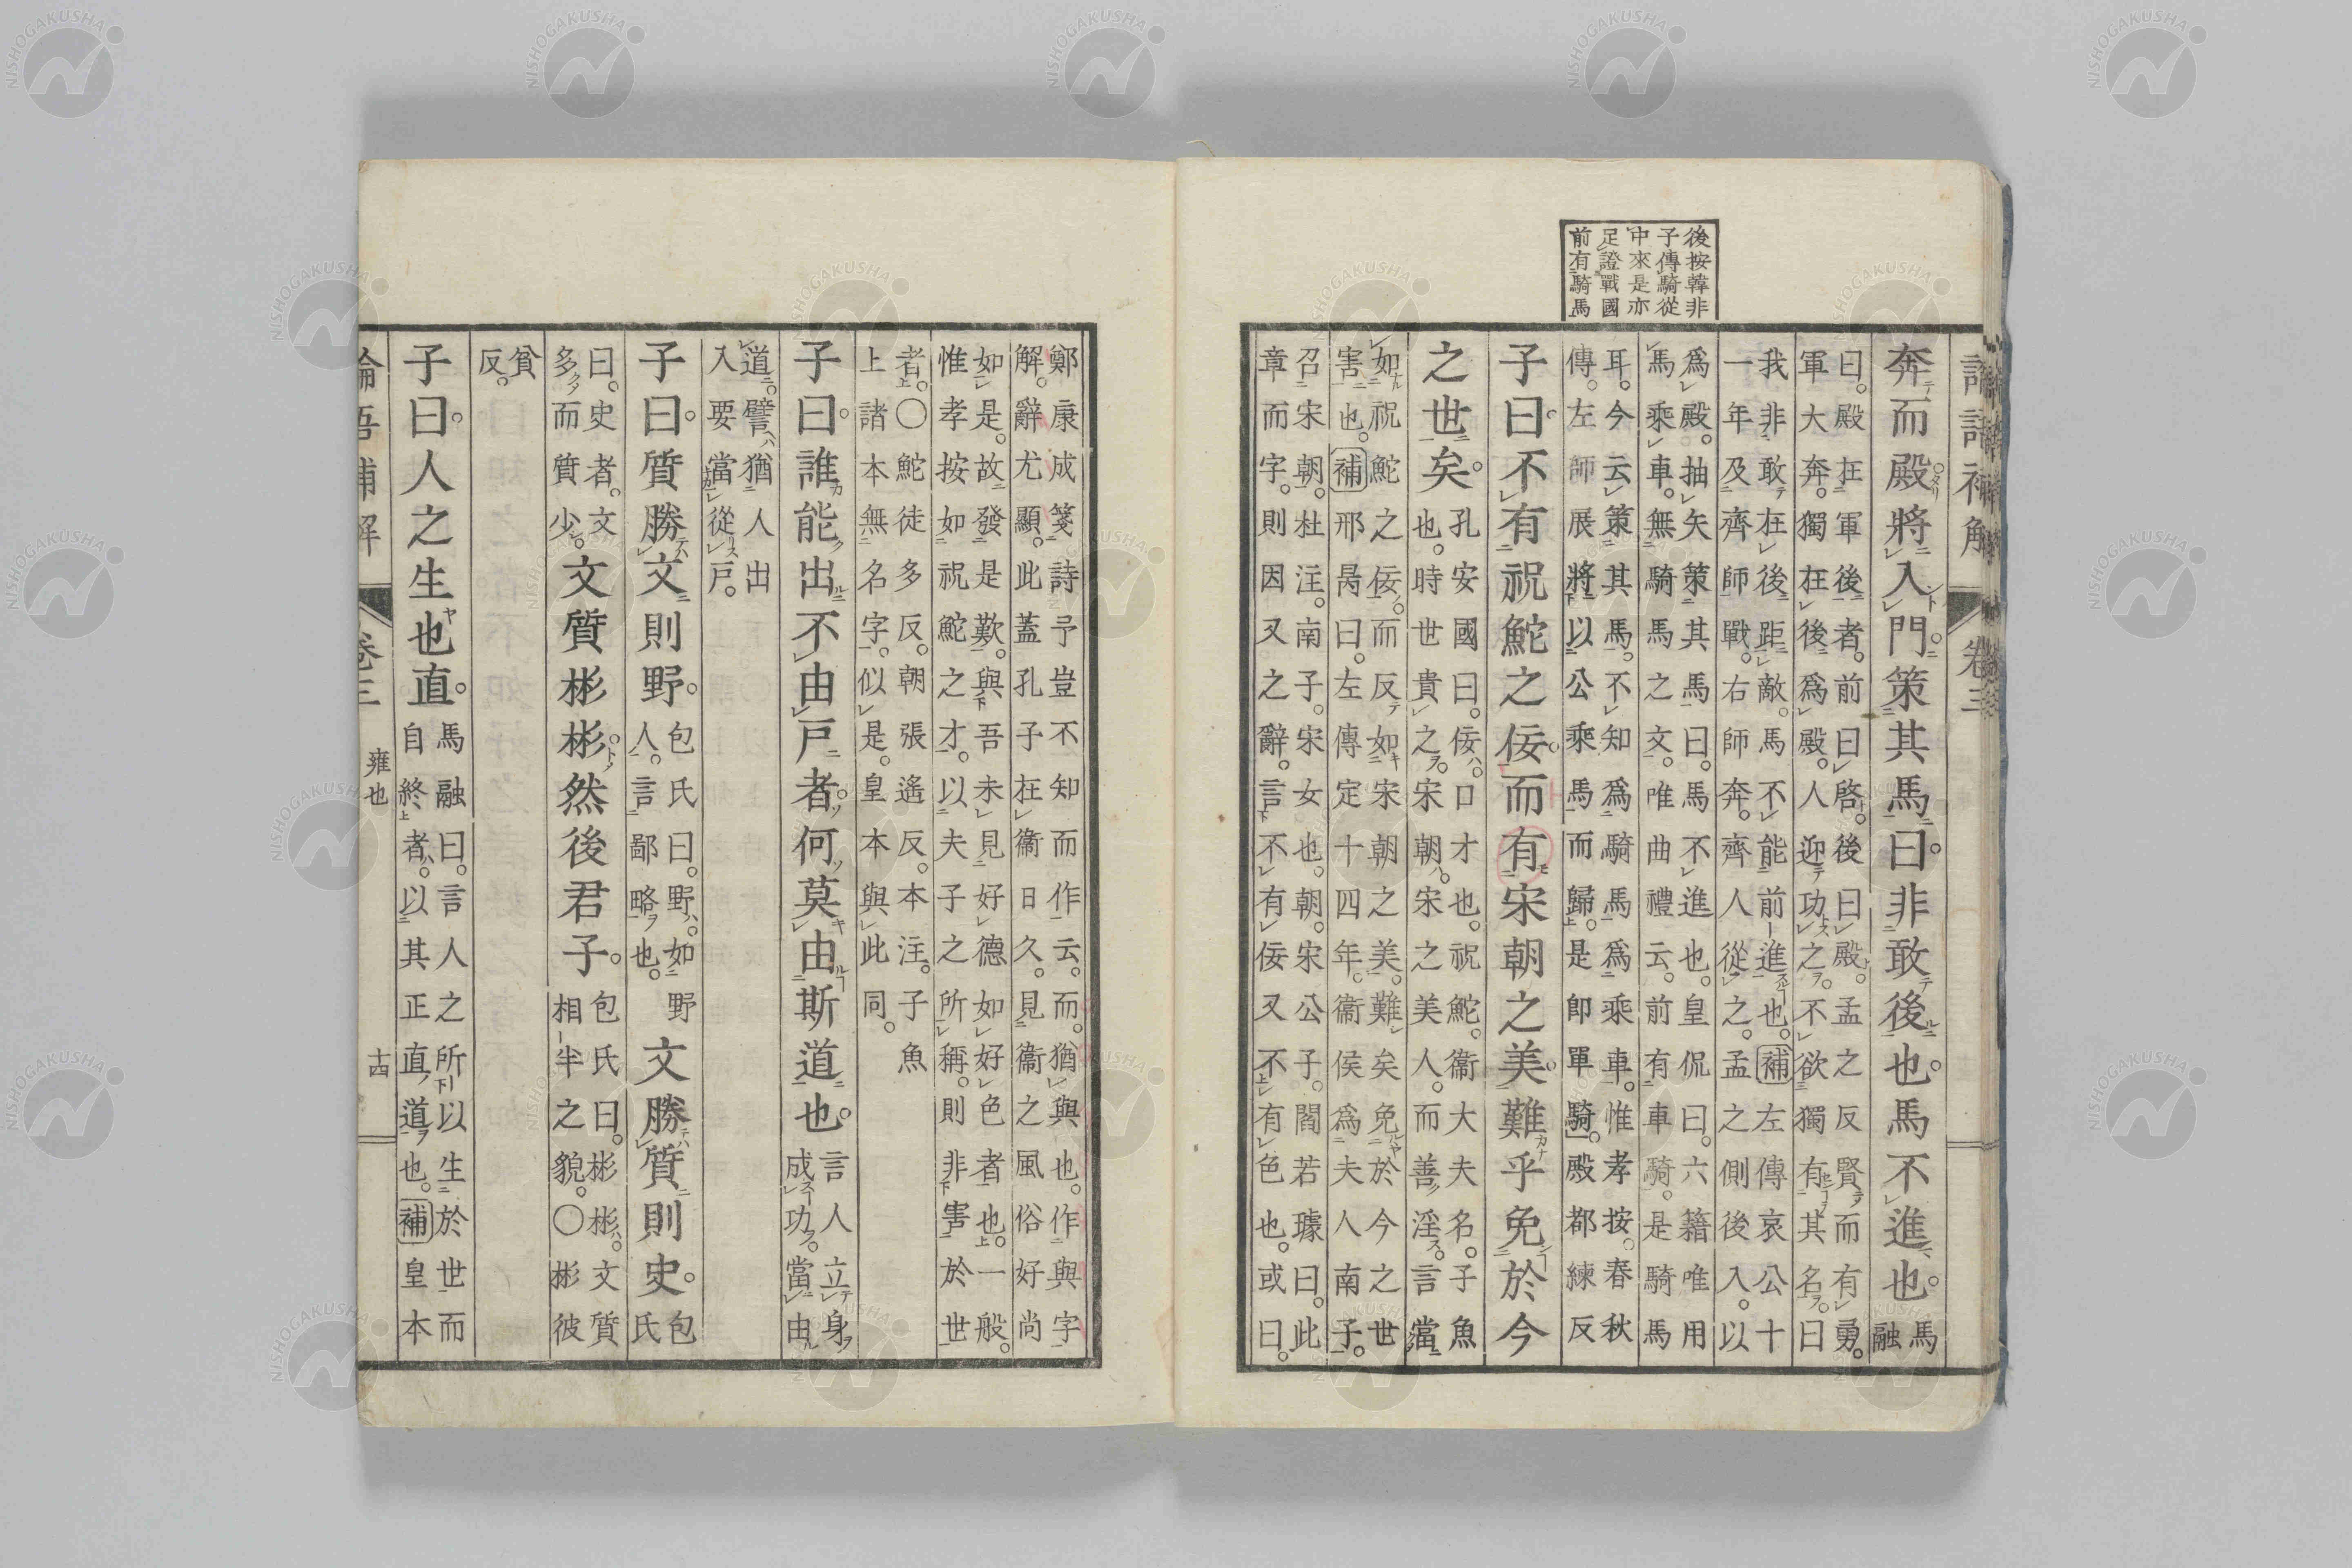 語補解 卷三
後按韓非
子傳騎從
中來是亦
足證戰國
前有騎馬
奔而殿將入門。策其馬曰。非敢後也。馬不進也。馬
融
曰。殿在軍後者。前曰啓。後曰殿。孟之反賢而有勇。
軍大奔。獨在後爲殿。人迎功之。不欲獨有其名。曰
我非敢在後距敵。馬不能前進也。補左傳哀公十
一年及齊師戰。右師奔。齊人從之。孟之側後入。以
爲殿。抽矢策其馬曰。馬不進也。皇侃曰。六籍唯用
馬乘車。無騎馬之文。唯曲禮云。前有車騎。是騎馬
耳。今云策其馬。不知爲騎馬爲乘車。惟孝按。春秋
傳。左師展將以公乘馬而歸。是卽單騎。殿都練反
子曰。不有祝鮀之佞。而有宋朝之美。難乎免於今
之世矣。
孔安國曰。佞口才也。祝鮀。衞大夫名。子魚
也。時世貴之。宋朝。宋之美人。而善淫。言當
如祝鮀之佞。而反如宋朝之美。難矣免於今之世
害也。補邢昺曰。左傳定十四年。衞侯爲夫人南子。
召宋朝。杜注。南子。宋女也。朝。宋公子。閻若璩曰。此
章而字。則因又之辭。言不有佞又不有色也。或曰。
鄭康成箋詩予豈不知而作云。而。猶與也。作與字
解。辭尤顯。此蓋孔子在衞日久。見衞之風俗好尚
如是。故發是歎。與吾未見好德如好色者也一般。
惟孝按如祝鮀之才。以夫子之所稱。則非害於世
者。〇鮀徒多反。朝張遙反。本注。子魚
上諸本無名字。似是。皇本與此同。
子曰。誰能出不由戶者。何莫由斯道也。
言人立身
成功。當由
道。譬猶人出
入要當從戶。
子曰。質勝文則野。
包氏曰。野如野
人。言鄙略也。
文勝質則史。
包
氏
曰。史者。文
多而質少。
文質彬彬。然後君子。
包氏曰。彬彬。文質
相半之貌。〇彬彼
貧
反。
子曰。人之生也直。
馬融曰。言人之所以生於世而
自終者。以其正直道也。補皇本
論語補解 卷三 雍也 十四